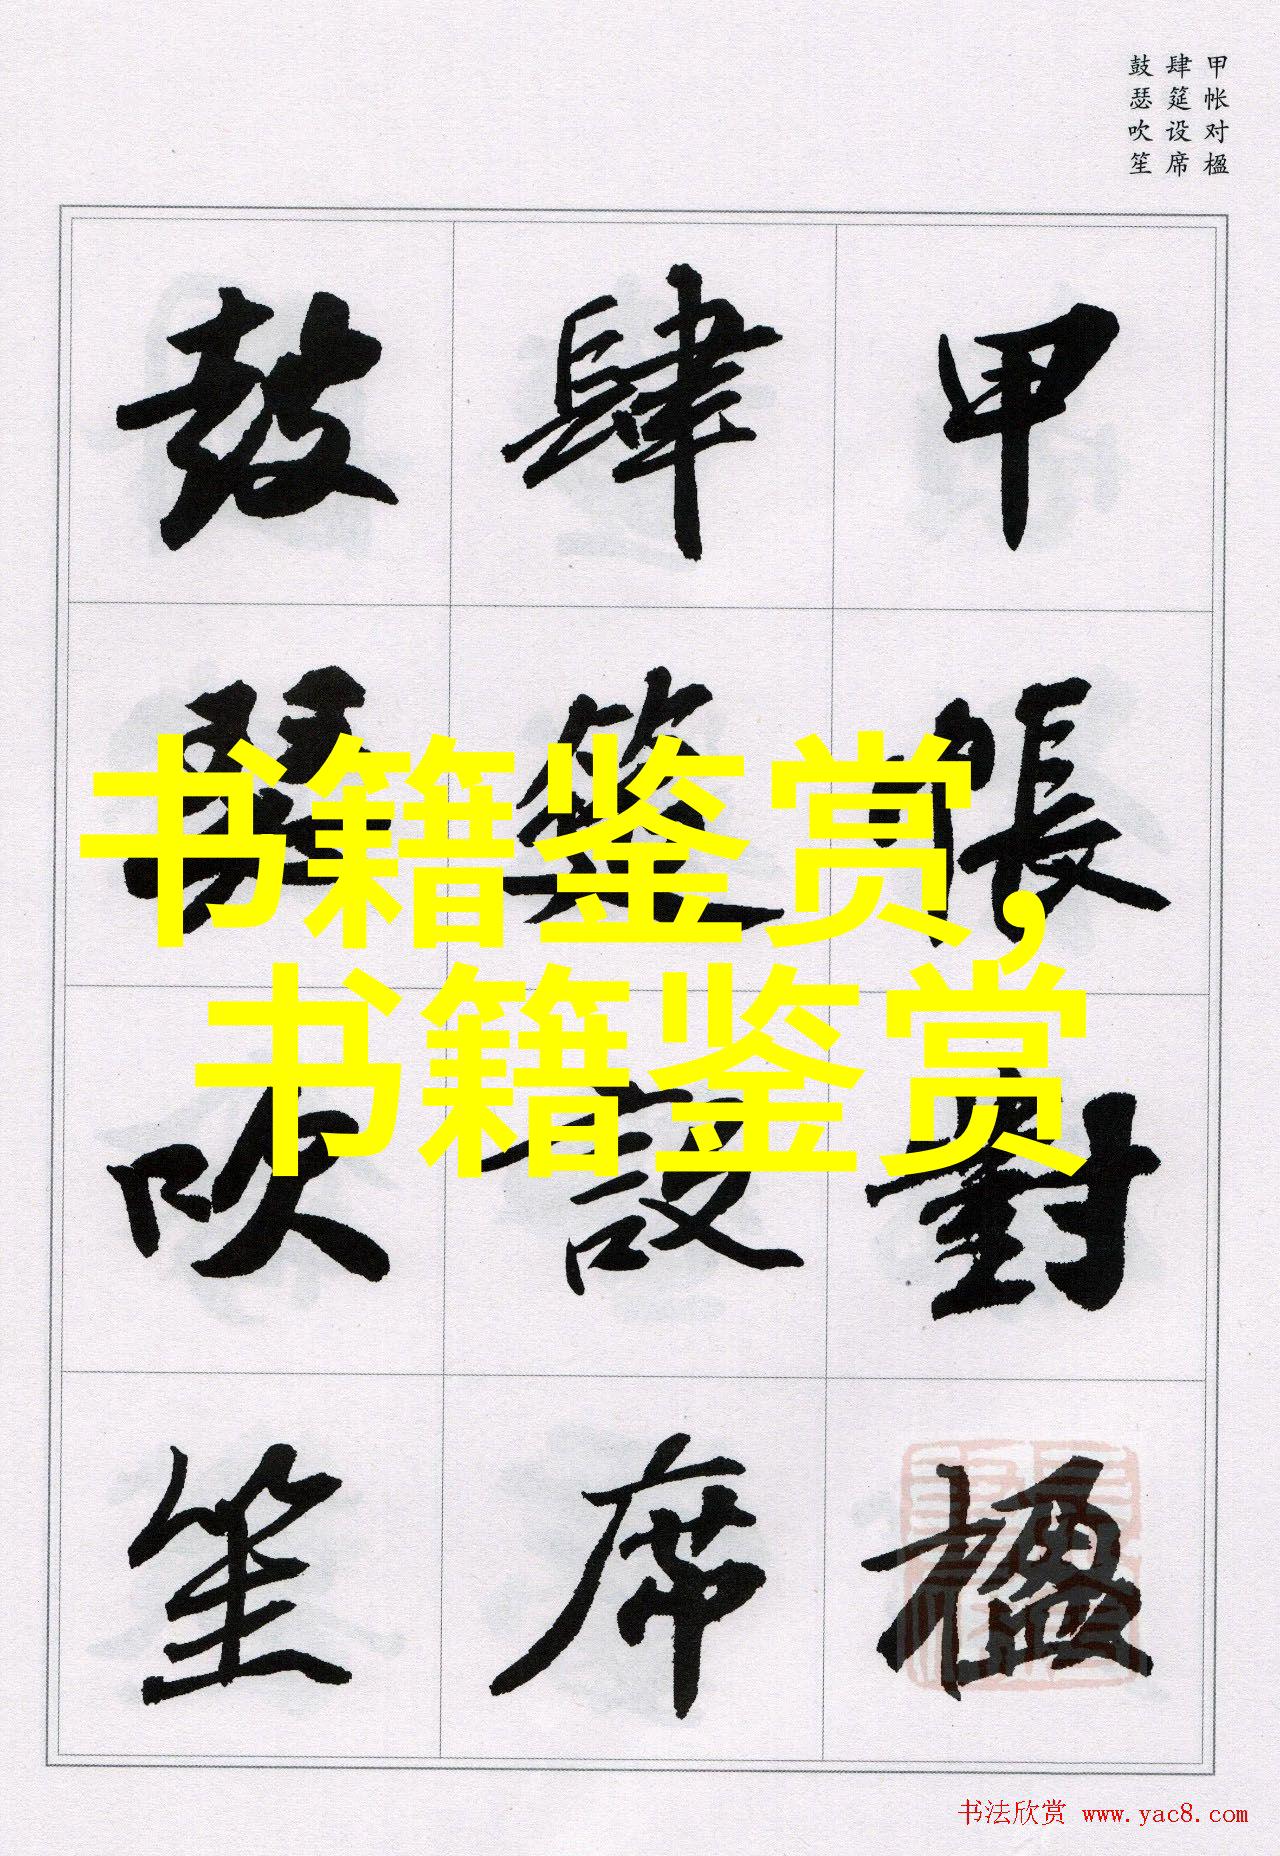 甲帐对楹
肆筵设席
鼓瑟吹笙
甲帳對楹
肆筵設席
鼓瑟吹笙
书籍鉴赏,
书籍鉴赏
书法欣赏 www.yac8.com